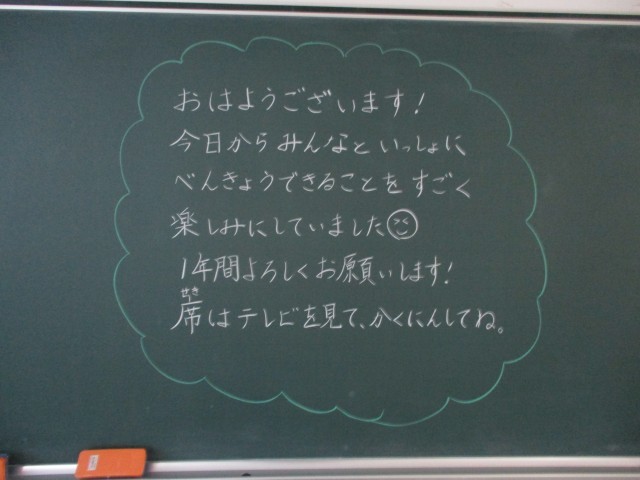 おはようございます!
今日からみんなといっしょに
べんきょうできることをすごく
楽しみにしていました
1年間よろしくお願いします!
せき
席はテレビを見て、かくにんしてね。